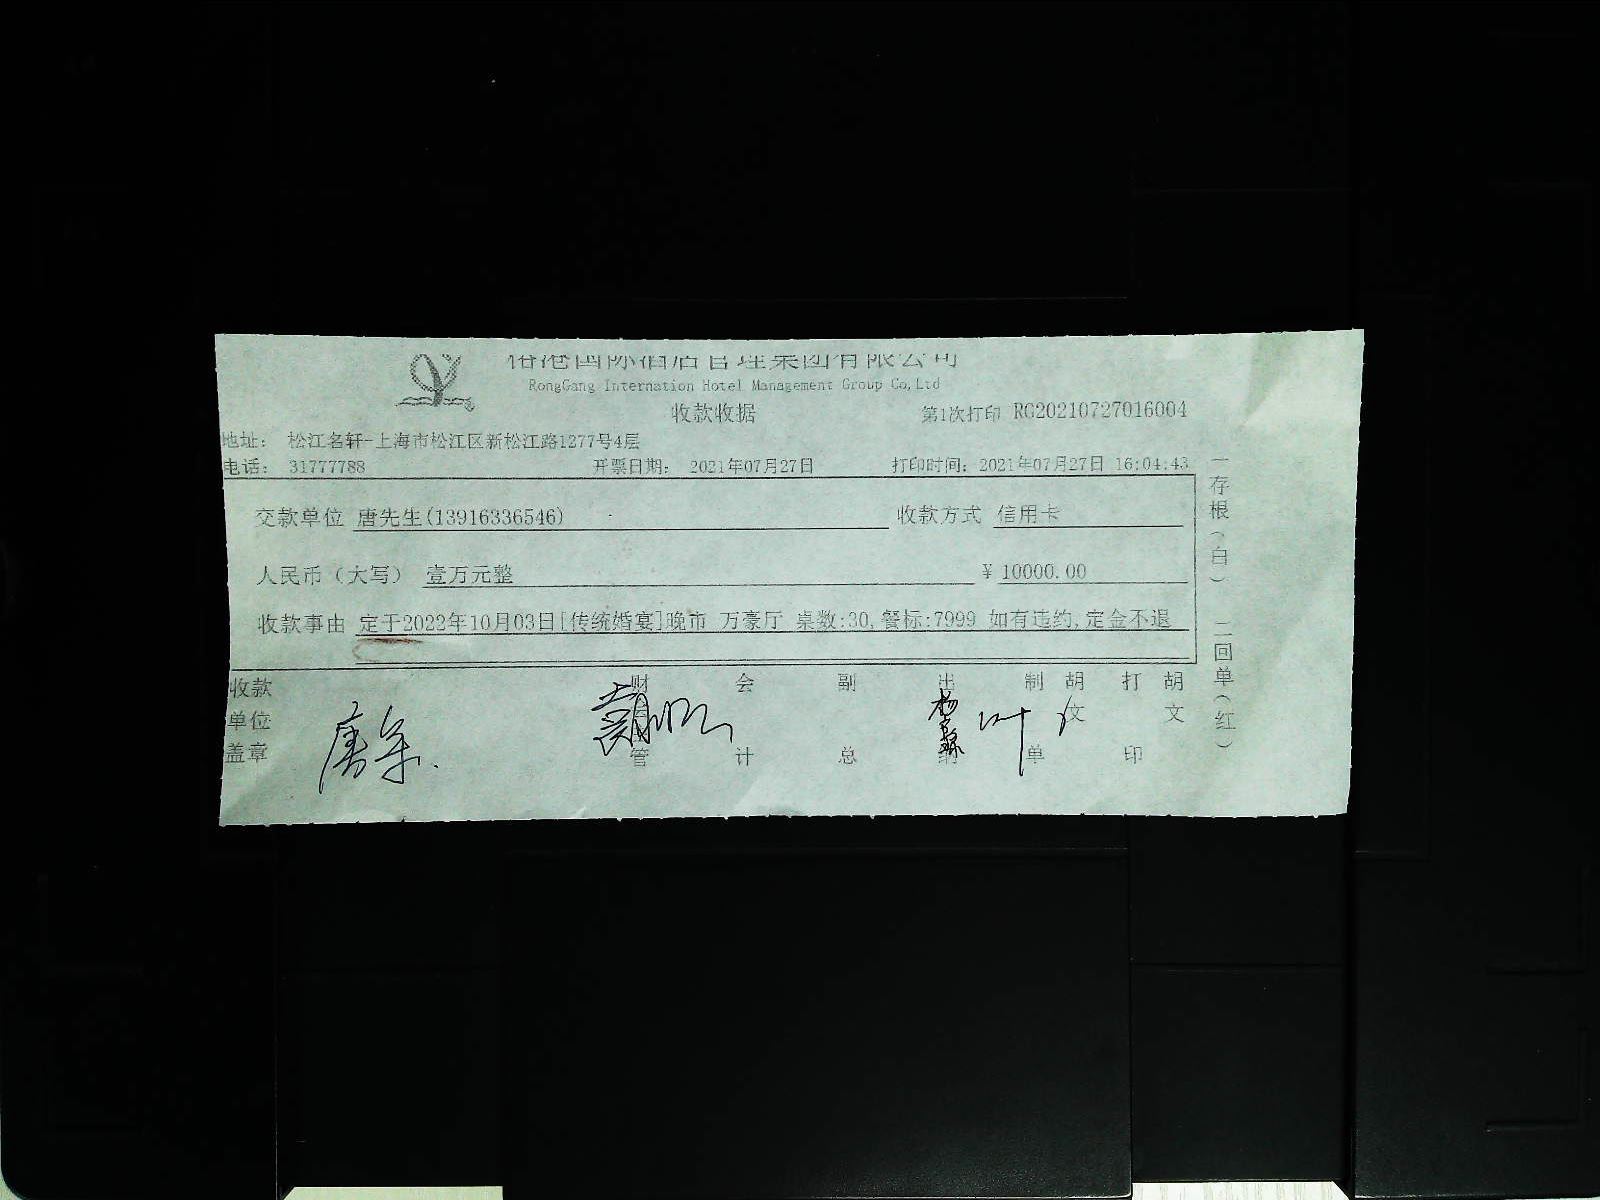 国际酒店管理集团有限公司
RongGang Internation Hotel Management Group Co,Ltd
收款收据 第1次打印 RG20210727016004
地址： 松江名轩-上海市松江区新松江路1277号4层
电话： 31777788 开票日期： 2021年07月27日 打印时间： 2021年07月27日 16:04:43
交款单位 唐先生(13916336546) 收款方式 信用卡
人民币（大写） 壹万元整 ￥10000.00
收款事由 定于2022年10月03日[传统婚宴]晚市 万豪厅 桌数:30,餐标:7999 如有违约,定金不退
收款单位盖章 财 管 会计 副总 出纳 制单 胡文 打印 胡文
一存根（白） 二回单（红）